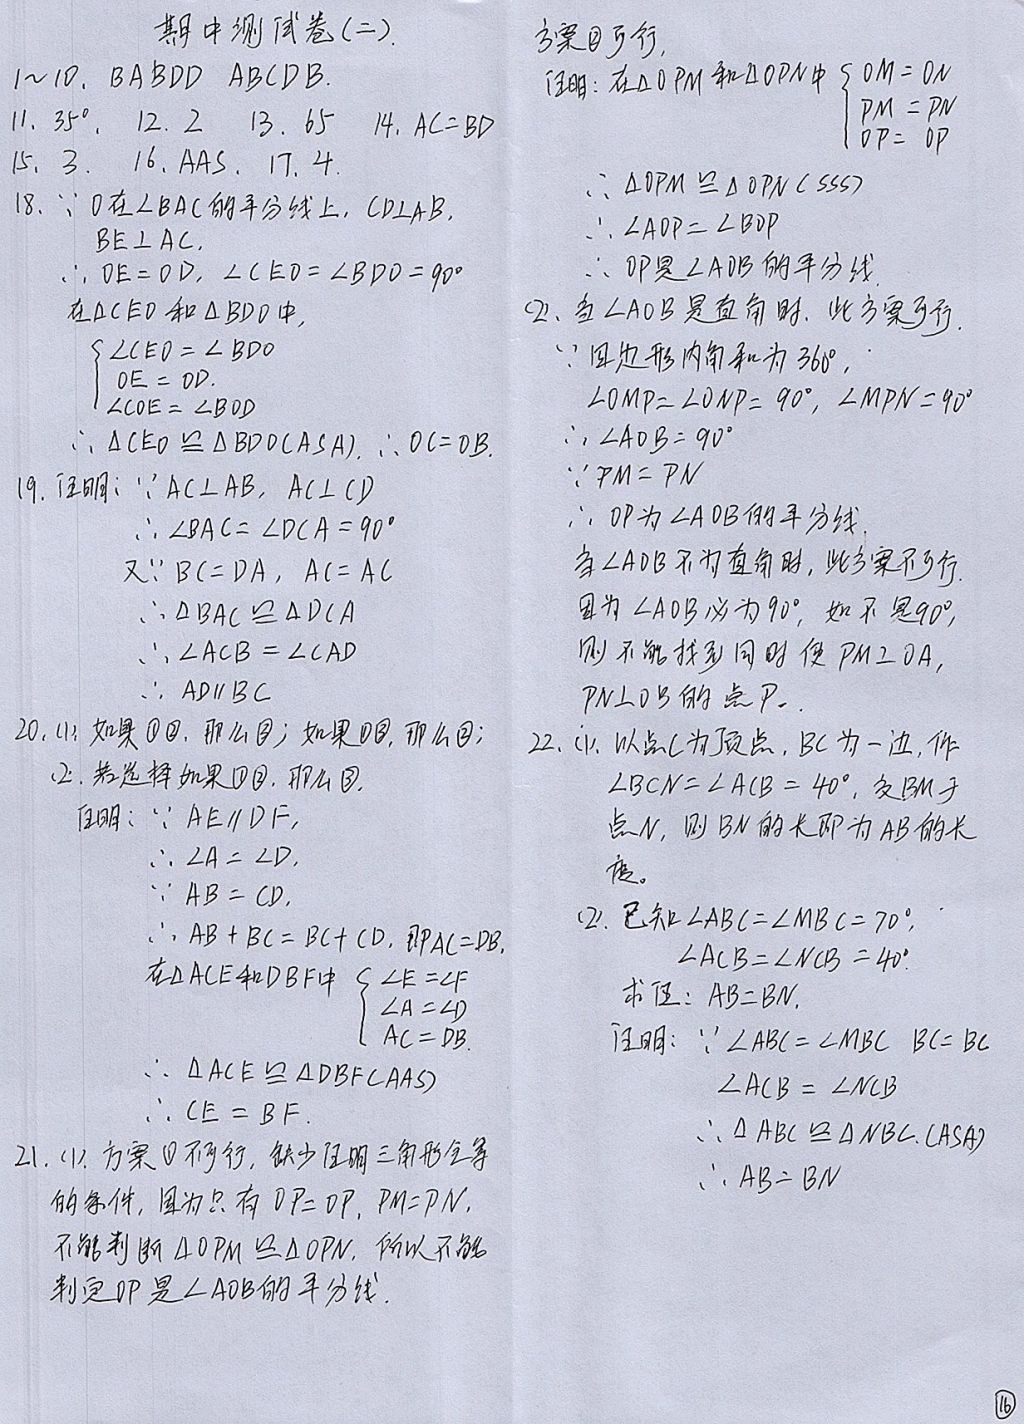 期中测试卷(二).
1~10. BABDD ABCDB.
11. 35°. 12. 2 13. 65 14. AC=BD
15. 3. 16. AAS. 17. 4.
18. ∵ O在∠BAC的平分线上, CD⊥AB,
BE⊥AC.
∴ OE=OD, ∠CEO=∠BDO=90°
在△CEO和△BDO中,
∠CEO=∠BDO
OE=OD.
∠COE=∠BOD
∴ △CEO≌△BDO(ASA). ∴ OC=OB.
19. 证明: ∵ AC⊥AB, AC⊥CD
∴ ∠BAC=∠DCA=90°
又∵ BC=DA, AC=AC
∴ △BAC≌△DCA
∴ ∠ACB=∠CAD
∴ AD∥BC
20. (1). 如果①②, 那么③; 如果①③, 那么②;
(2). 若选择如果①②, 那么③.
证明: ∵ AE∥DF,
∴ ∠A=∠D.
∵ AB=CD.
∴ AB+BC=BC+CD, 即AC=DB.
在△ACE和DBF中 ∠E=∠F
∠A=∠D
AC=DB.
∴ △ACE≌△DBF(AAS)
∴ CE=BF.
21. (1). 方案①不可行, 缺少证明三角形全等
的条件, 因为只有OP=OP, PM=PN,
不能判断△OPM≌△OPN, 所以不能
判定OP是∠AOB的平分线.
方案②可行,
证明: 在△OPM和△OPN中 OM=ON
PM=PN
OP=OP
∴ △OPM≌△OPN(SSS)
∴ ∠AOP=∠BOP
∴ OP是∠AOB的平分线
(2). 当∠AOB是直角时, 此方案可行.
∵ 四边形内角和为360°,
∠OMP=∠ONP=90°, ∠MPN=90°
∴ ∠AOB=90°
∵ PM=PN
∴ OP为∠AOB的平分线.
当∠AOB不为直角时, 此方案不可行.
因为∠AOB必为90°, 如不是90°,
则不能找到同时使PM⊥OA,
PN⊥OB的点P.
22. (1). 以点C为顶点, BC为一边, 作
∠BCN=∠ACB=40°, 交BM于
点N, 则BN的长即为AB的长
度。
(2). 已知∠ABC=∠MBC=70°,
∠ACB=∠NCB=40°.
求证: AB=BN.
证明: ∵ ∠ABC=∠MBC BC=BC
∠ACB=∠NCB
∴ △ABC≌△NBC.(ASA)
∴ AB=BN
16